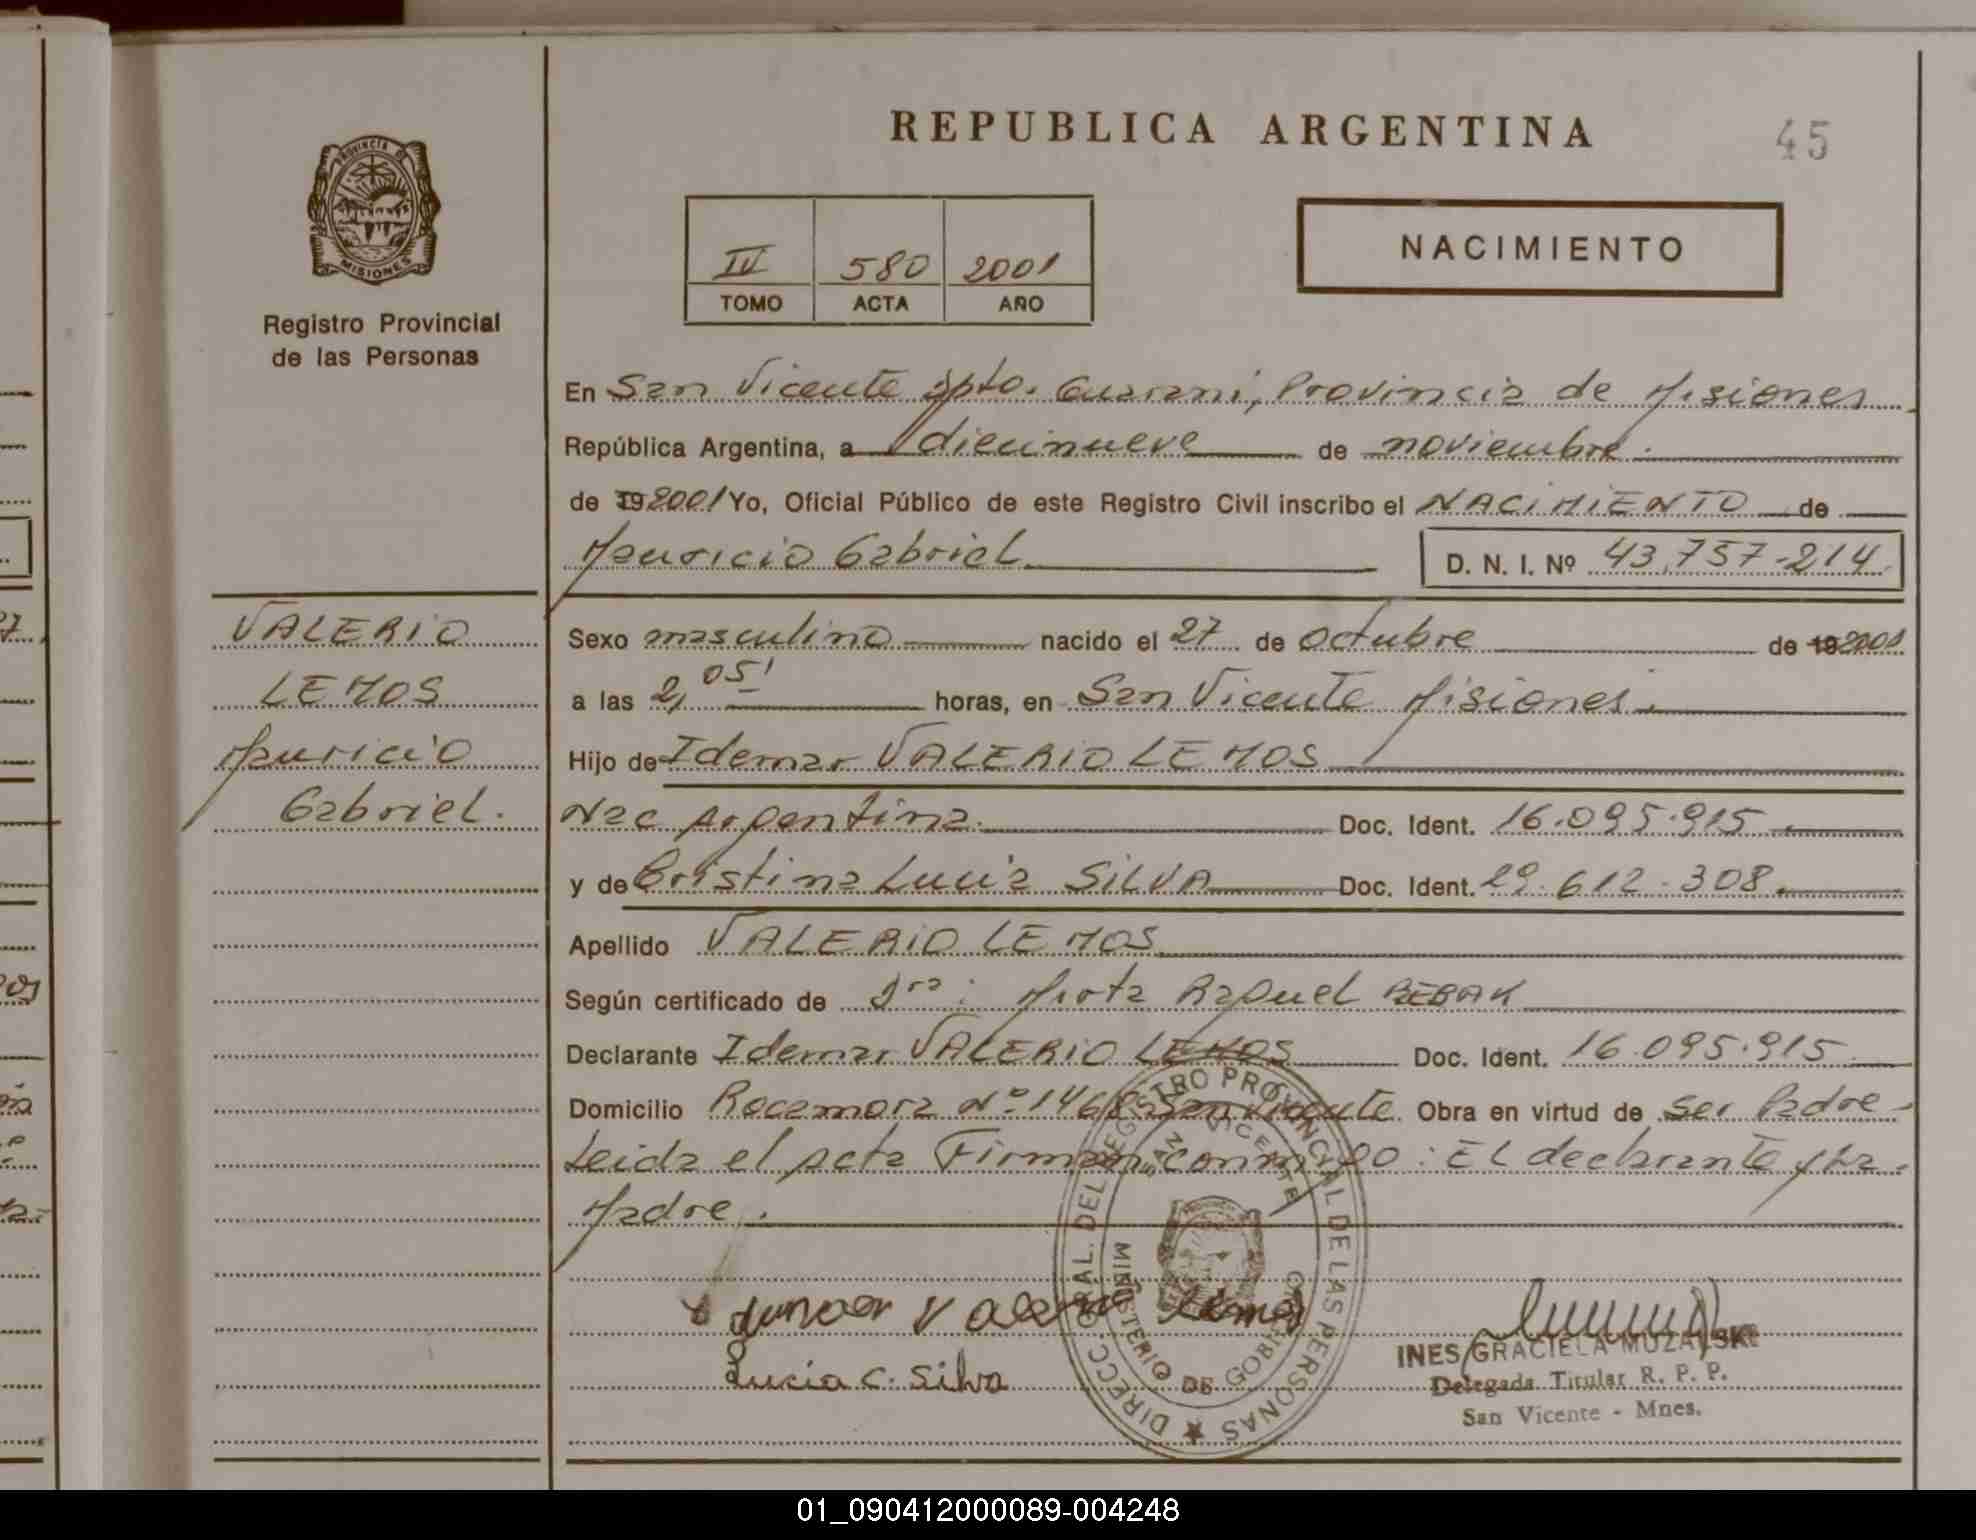 REPUBLICA ARGENTINA
45
PROVINCIA DE MISIONES
Registro Provincial
de las Personas
IV 580 2001
TOMO ACTA AÑO
NACIMIENTO
En San Vicente Dpto. Guarani, Provincia de Misiones
República Argentina, a diecinueve de noviembre.
de 19 2001 Yo, Oficial Público de este Registro Civil inscribo el NACIMIENTO de
Mauricio Gabriel D. N. I. Nº 43.757.214
VALERIO
LEMOS
Mauricio
Gabriel.
Sexo masculino nacido el 27 de octubre de 19 2001
a las 2, 05' horas, en San Vicente Misiones.
Hijo de Idemar VALERIO LEMOS
Nac Argentina. Doc. Ident. 16.095.915
y de Cristina Lucia SILVA Doc. Ident. 29.612.308.
Apellido VALERIO LEMOS
Según certificado de Dra: Mirta Raquel REBAK
Declarante Idemar VALERIO LEMOS Doc. Ident. 16.095.915
Domicilio Rocamora Nº 1468 San Vicente Obra en virtud de ser Padre
Leida el acta Firman conmigo: El declarante y La
Madre.
DIRECC. GRAL. DEL REGISTRO PROVINCIAL DE LAS PERSONAS
SAN VICENTE
MINISTERIO DE GOBIERNO
Idemar Valerio Lemos
Lucia C. Silva
INES GRACIELA MUZALSKI
Delegada Titular R. P. P.
San Vicente - Mnes.
01_090412000089-004248